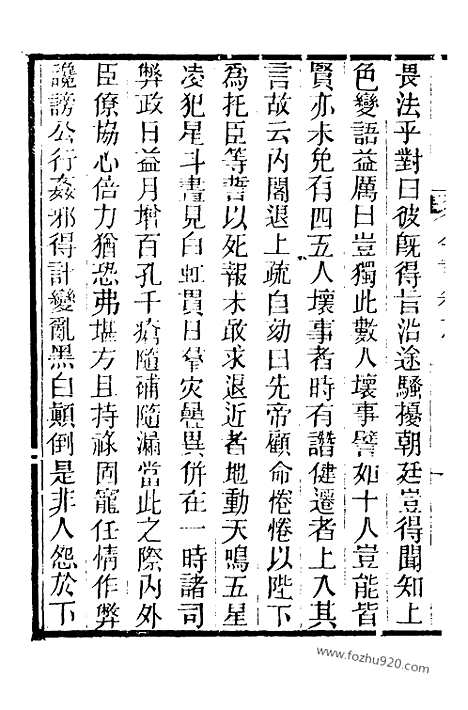 畏法乎對曰彼旣得旨沿途騷擾朝廷豈得聞知上
色變語益厲曰豈獨此數人壞事譬如十人豈能皆
賢亦未免有四五人壞事者時有譖健遷者上入其
言故云內閣退上疏自劾曰先帝顧命惓惓以陛下
爲托臣等誓以死報未敢求退近者地動天鳴五星
凌犯星斗晝見白虹貫日羣灾疊異併在一時諸司
弊政日益月增百孔千瘡隨補隨漏當此之際內外
臣僚協心倍力猶恐弗堪方且持祿固寵任情作弊
讒謗公行姦邪得計變亂黑白顚倒是非人怨於下
www.fozhu920.com